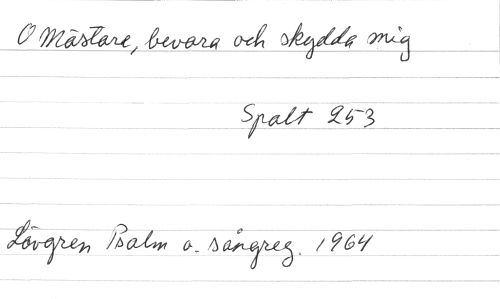 O Mästare, bevara och skydda mig
Spalt 253
Lövgren Psalm o. sångreg. 1964